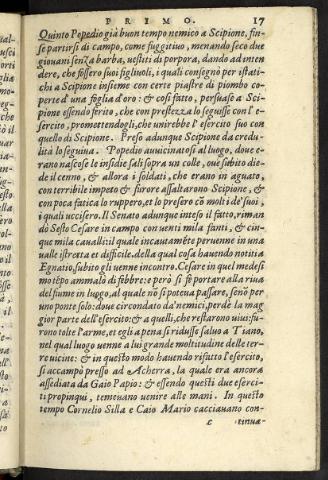 PRIMO. 17
Quinto Popedio già buon tempo nemico a Scipione, fin-
se partirsi di campo, come fuggitiuo, menando seco due
giouani senza barba, uestiti di porpora, dando ad inten
dere, che fossero suoi figliuoli, i quali consegnò per istati-
chi a Scipione insieme con certe piastre di piombo co-
perte d'una foglia d'oro: & così fatto, persuase a Sci-
pione essendo ferito, che con prestezza lo seguisse con l'e-
sercito, promettendogli, che unirebbe l'esercito suo con
quello di Scipione. Preso adunque Scipione da credu-
lità lo seguiua. Popedio auuicinatosi al luogo, doue e-
rano nascose le insidie salì sopra un colle, oue subito die-
de il cenno, & allora i soldati, che erano in aguato,
con terribile impeto & furore assaltarono Scipione, & e
con poca fatica lo ruppero, et lo presero cō molti de' suoi,
i quali uccisero. Il Senato adunque inteso il fatto, riman
dò Sesto Cesare in campo con uenti mila fanti, & cin-
que mila caualli: il quale incautamēte peruenne in una
ualle istretta et difficile. della qual cosa hauendo notitia
Egnatio, subito gli uenne incontro. Cesare in quel medesi
mo tēpo ammalò di febbre: e però si fe portare alla riua
del fiume in luogo, al quale nō si poteua passare, senō per
uno ponte solo: doue circondato da nemici, perdè la mag
gior parte dell'esercito: & a quelli, che restarono uiui: fu-
rono tolte l'arme, et egli a pena si ridusse saluo a Tiano,
nel qual luogo uenne a lui grande moltitudine delle ter-
re uicine: & in questo modo hauendo rifatto l'esercito,
si accampò presso ad Acherra, la quale era ancora
assediata da Gaio Papio: & essendo questi due eserci-
ti propinqui, temeuano uenire alle mani. In questo
tempo Cornelio Silla e Caio Mario cacciauano con-
c tinua-